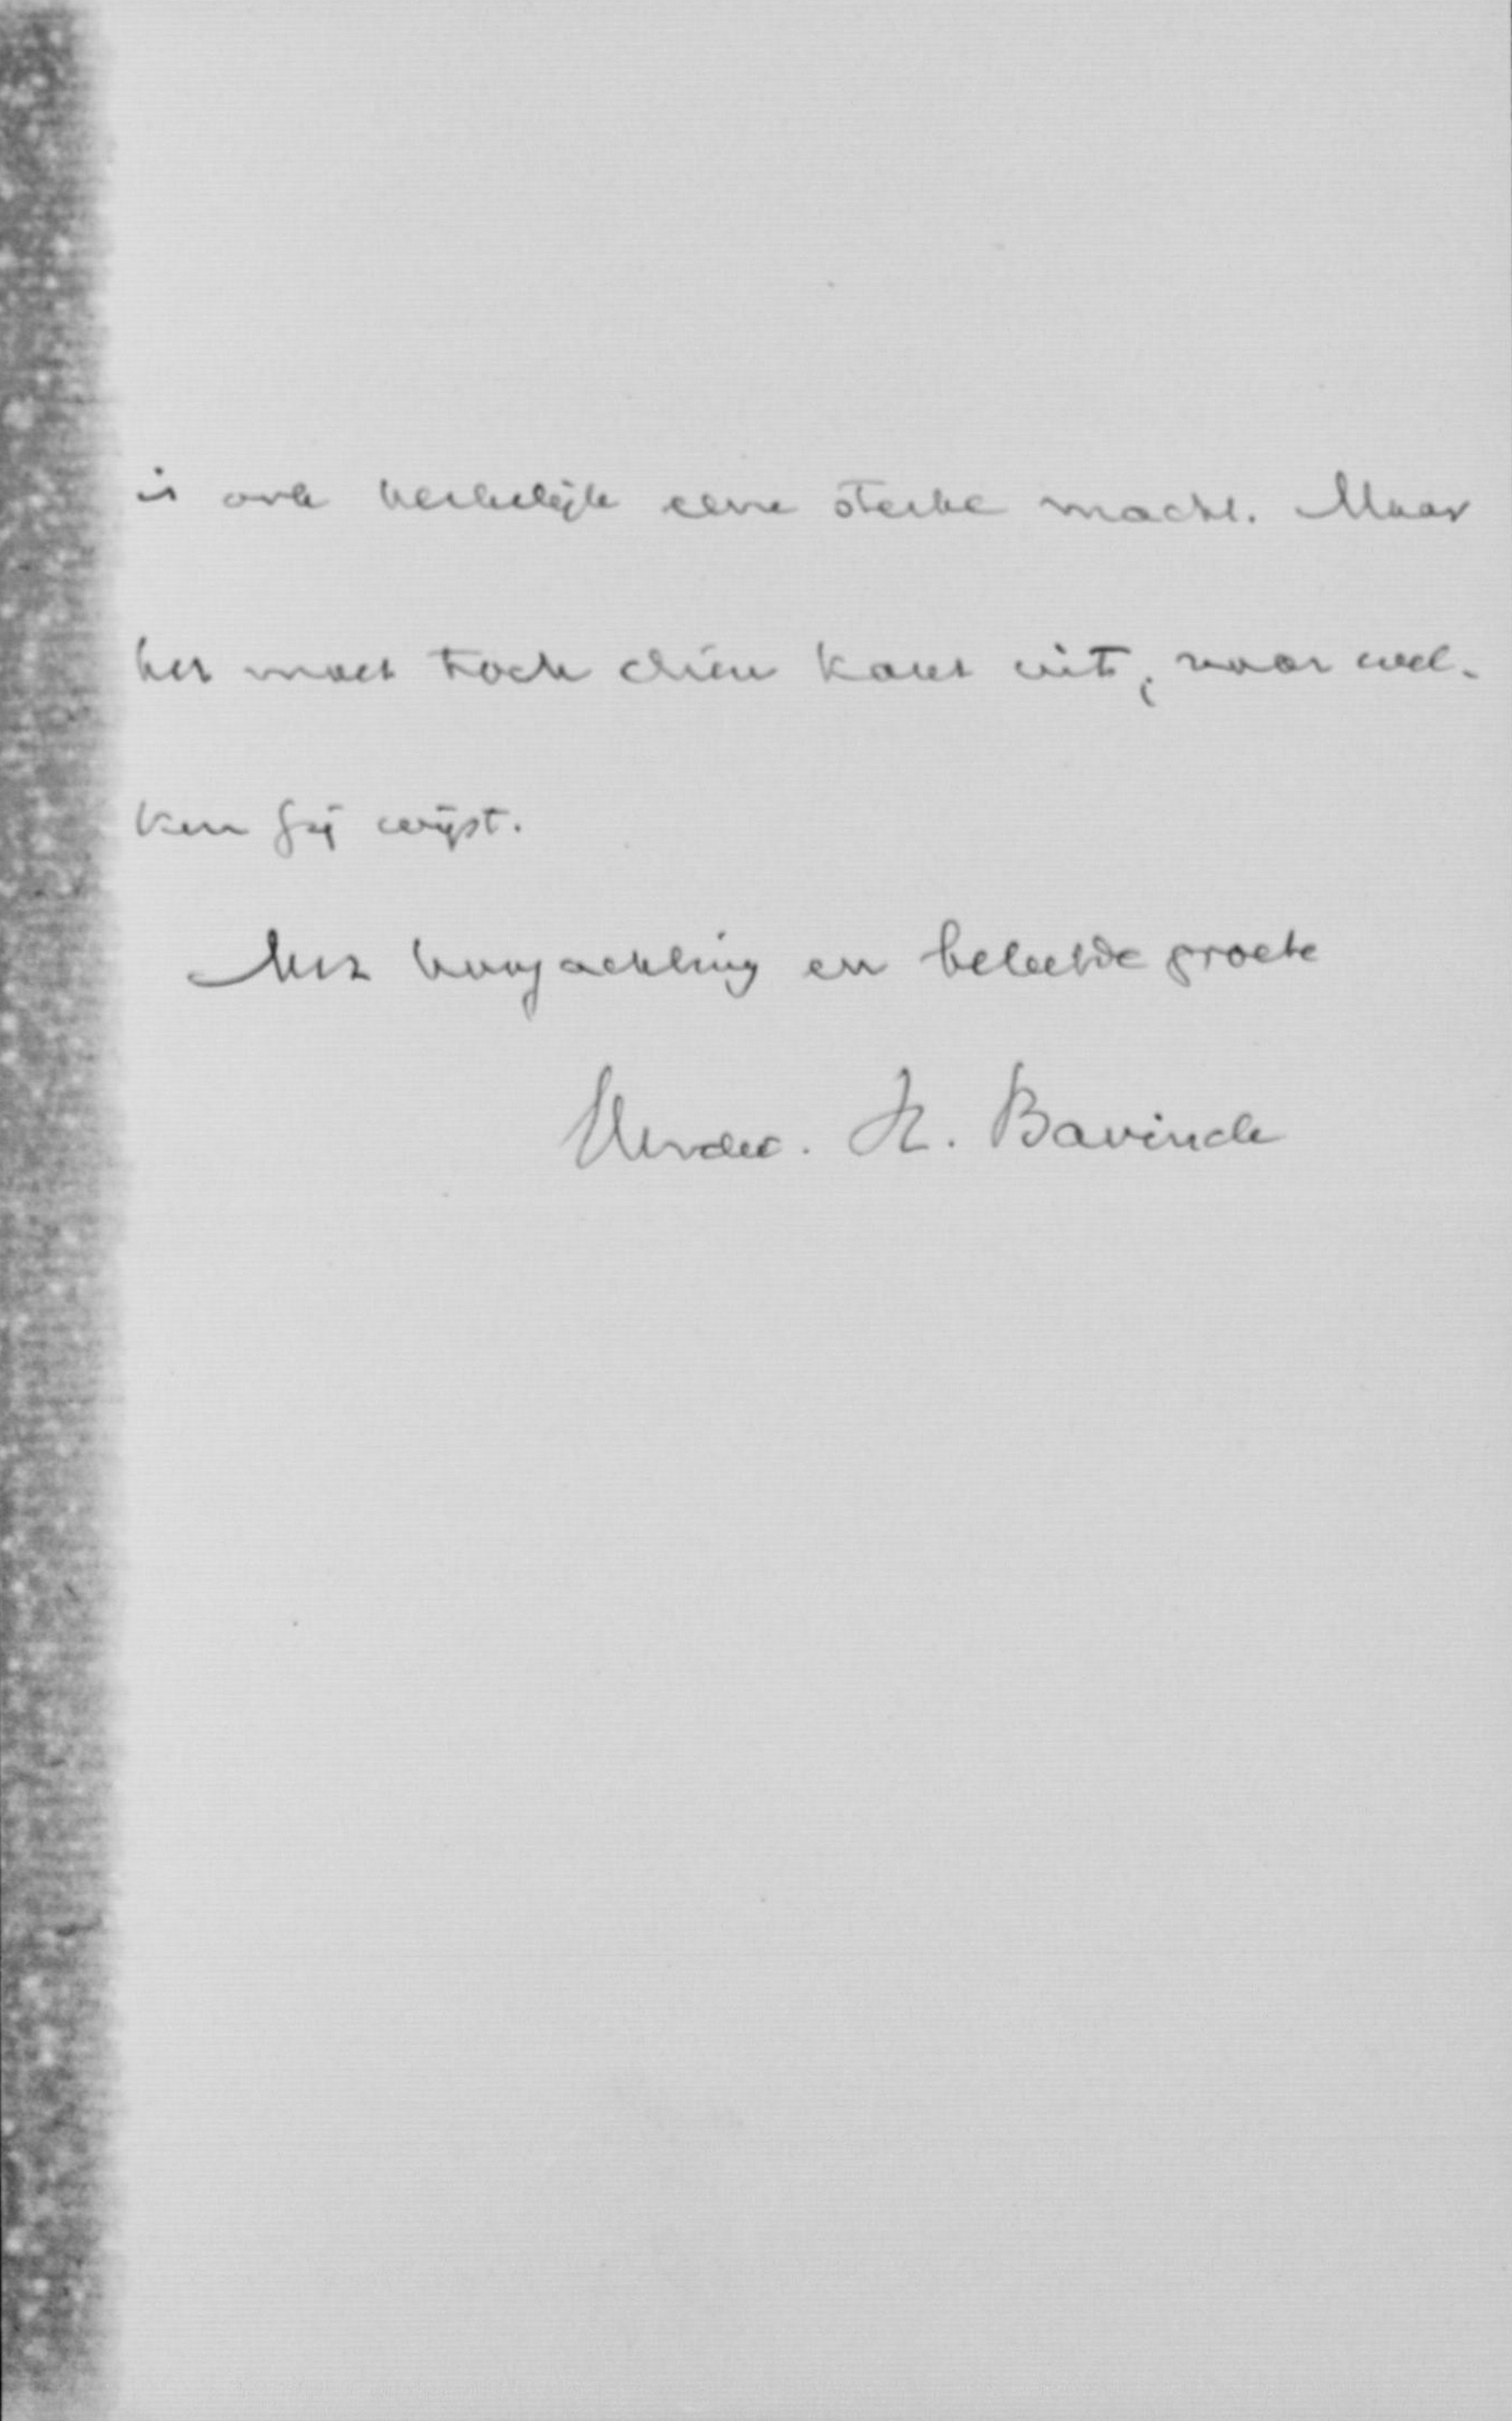 is ook kerkelijk eene sterke macht. Maar
het moet toch dien kant uit, naar wel-
ken gij wijst.
Met hoogachting en beleefde groete
Uwdw. H. Bavinck